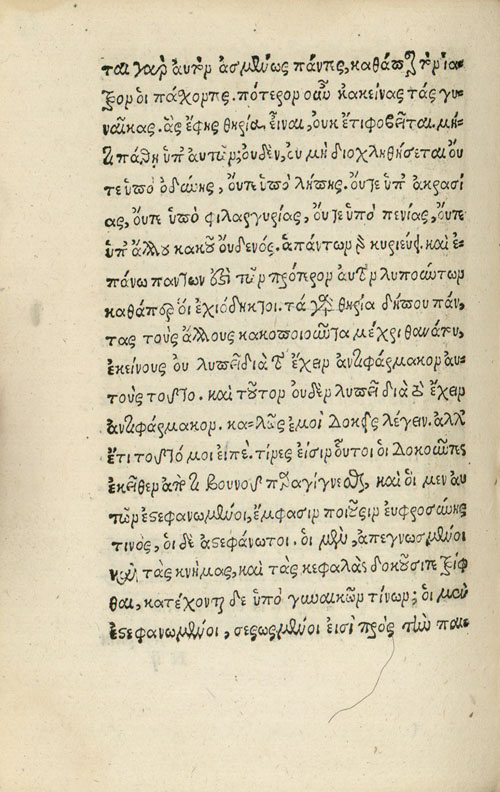 ται γὰρ αὐτὸν ἀσμένως πάντες, καθάπερ τὸν ἰα-
τρὸν οἱ πάχοντες. πότερον οὖν κακείνας τάς γυ-
ναῖκας. ἃς ἔφης θηρία εἶναι, οὐκ ἔτι φοβεῖται. μή-
τι πάθη ὑπ' αυτῶν; ουδεν, ου μὴ διοχληθήσεται οὔ
τε ὑπὸ ὀδύνης, οὔτε ὑπὸ λήπης. οὔτε ὑπ' ἀκρασί
ας, οὔτε ὑπὸ φιλαργυρίας, οὔτε ὑπὸ πενίας, οὔτε
ὑπ' ἄλλου κακοῦ ὀυδενός. ἁπάντων γὰρ κυριεύει. καὶ ἐ-
πάνω παντων ἐστὶ τῶν πρότερον αυτὸν λυπούντων
καθάπερ ὁἱ ἐχιόδηκτοι. τά γὰρ θηρία δήπου πάν,
τας τοὺς ἄλλους κακοποιοῦντα μέχρι θανάτου,
ἐκείνους ου λυπεῖ διὰ τὸ ἔχειν ἀντιφάρμακον ἀυ-
τοὺς τοστο. καὶ τοῦτον ουδὲν λυπεῖ διὰ τὸ ἔχειν
ἀντιφάρμακον. κα-λῶς ἐμοὶ δοκεῖς λέγειν. ἀλλ'
ἔτι τοστό μοι ἐιπέ. τίνες ἐίσιν οὗτοι ὁι δοκοῦντες
ἐκεῖθεν ἀπὸ τοῦ βουνοῦ παραγίγνεσθαι, καὶ ὁι μεν ἀυ
τῶν ἐστεφανωμένοι, ἔμφασιν ποιοῦσιν ευφροσύνης
τινός, ὁι δὲ ἀστεφάνωτοι. ὁι μὲν, ἀπεγνωσμένοι
καὶ τὰς κνήμας, καὶ τὰς κεφαλὰς δοκοῦσι τετρίφ
θαι, κατέχονται δε ὑπό γυναικῶν τίνων; ὁι μεν
ἐστεφανωμένοι, σεσωσμένοι εισὶ πρὸς τὴν παι-